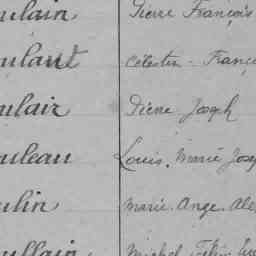 ulain Pierre François
ulaut Célestin - Franço
ulair Pierre Joseph
uleau Louis. Marie Jose
ulin Marie. Ange. Ale
ullain Michel